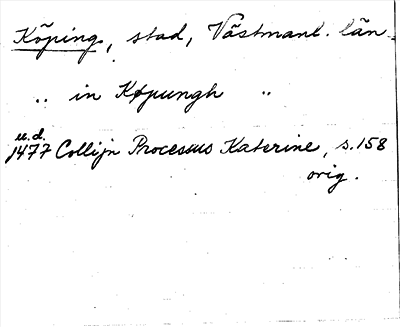 Köping, stad, Västmanl. län
" in Køpungh "
u.d.
1477 Collijn Processus Katerine, s.158
orig.